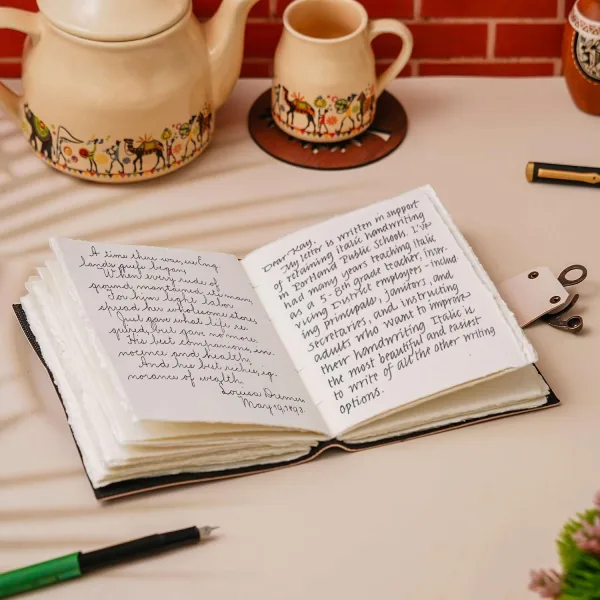 A time there was, ere Eng
lands griefs began,
When every rude of
ground mantained its man,
For him light labor
spread her wholesome store
Just gave what life re
quired, but gave no more.
His best companions, in
nocence and health,
And his best riches, ig
norance of wealth.
Louisa
May 19, 1893.
Dear Kay,
My letter is written in support
of retaining italic handwriting
in Portland Public Schools. I've
had many years teaching italic
as a 5-8th grade teacher, inser-
vicing District employees - includ
ing principals, janitors, and
secretaries, and instructing
adults who want to improve
their handwriting. Italic is
the most beautiful and easiest
to write of all the other writing
options.